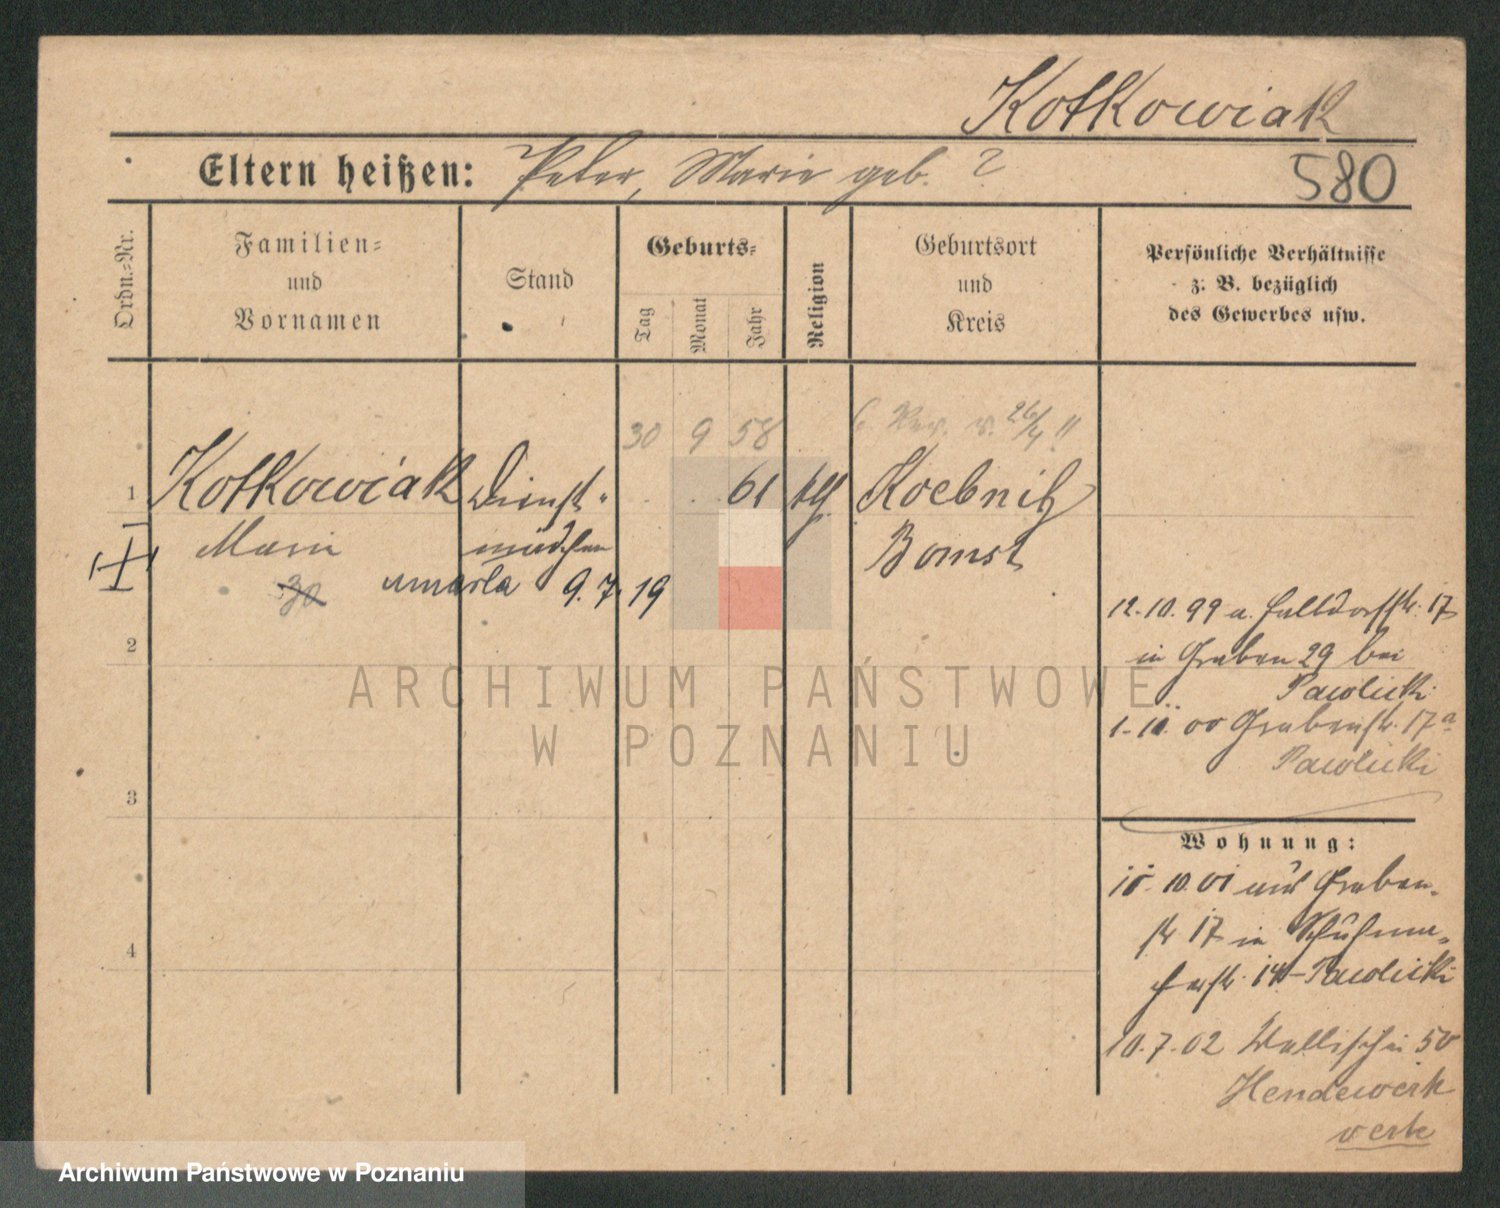 Kotkowiak
Eltern heißen: Peter, Marie geb. ?
580
Ordn.-Nr.
Familien-
und
Vornamen
Stand
Geburts-
Tag
Monat
Jahr
Religion
Geburtsort
und
Kreis
Persönliche Verhältnisse
z. B. bezüglich
des Gewerbes usw.
30 9 58 v. 26/4 11
1 Kotkowiak Dienst- 61 kth. Koebnitz
Marie mädchen Bomst
30 umarła 9.7.19
12.10.99 a. Halldorfstr. 17
2
in Graben 29 bei
Pawlicki
1.10.00 Grabenstr. 17a
Pawlicki
3
Wohnung:
10.01 aus Graben-
str 17 in Schuhma-
cherstr. 14 Pawlicki
4
10.7.02 Wallischei 50
Hendewerk
verte
ARCHIWUM PAŃSTWOWE
W POZNANIU
Archiwum Państwowe w Poznaniu